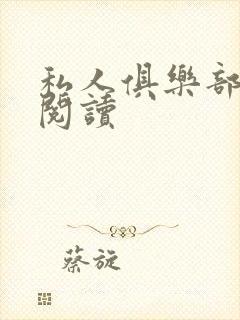 私人俱樂部
閱讀
蔡旋